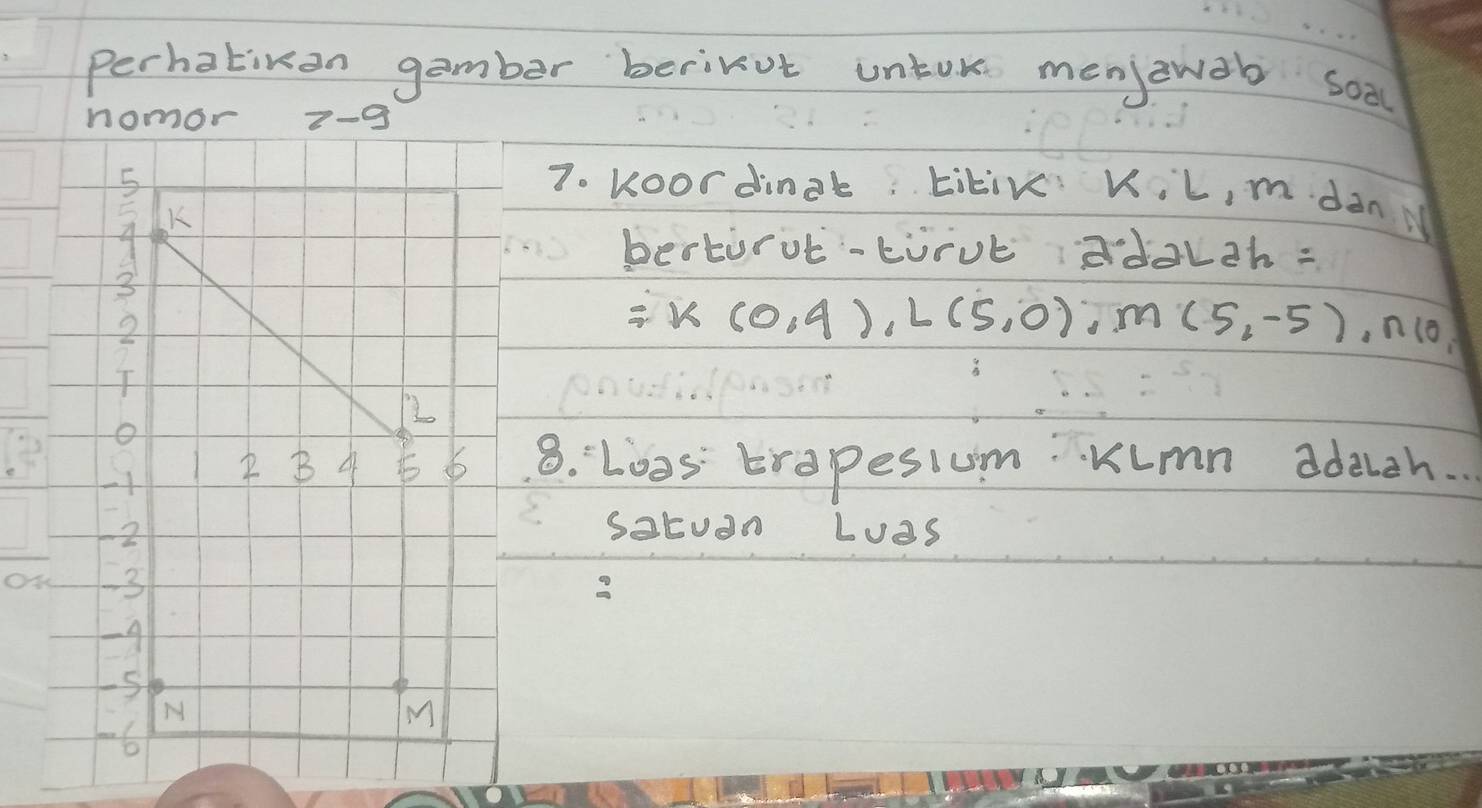 Perhatikan gambar berikut untuk menjawab soal
nomor 7-9
5
K
4
3
2
1
L
0
1 2 3 4 5 6
-1
-2
-3
-4
-5
N M
-6
7. Koordinat titik K, L, m dan N
berturut-turut adalah =
= K (0,4), L (5,0), m (5,-5), n (0,
8. Luas trapesium KLmn adalah...
satuan Luas
=